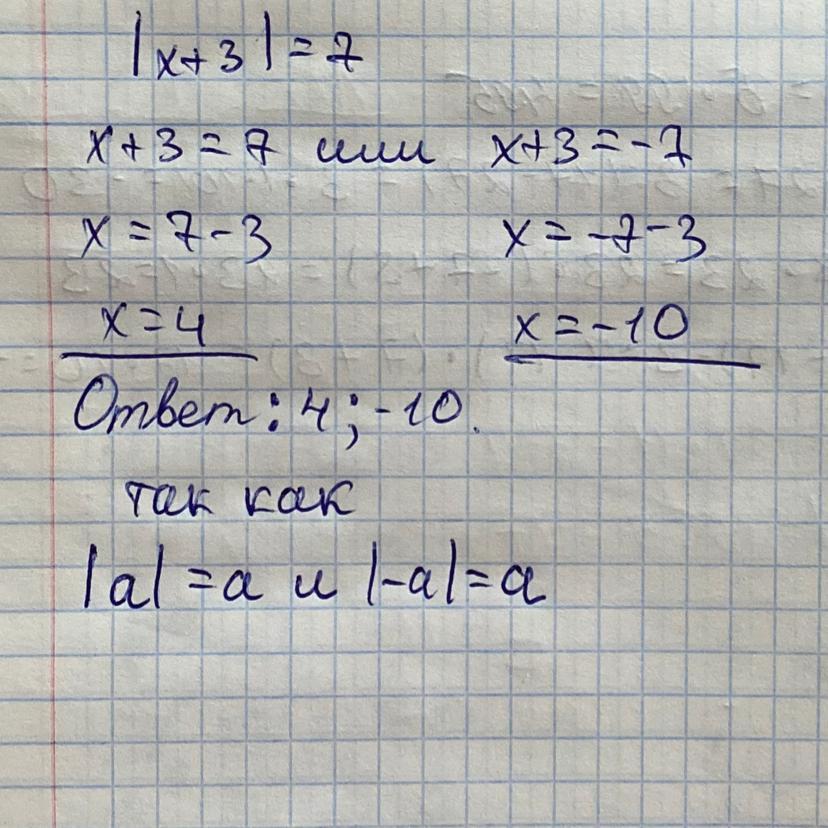 |x+3|=7
x+3=7 или x+3=-7
x=7-3 x=-7-3
x=4 x=-10
Ответ: 4;-10.
так как
|a|=a и |-a|=a